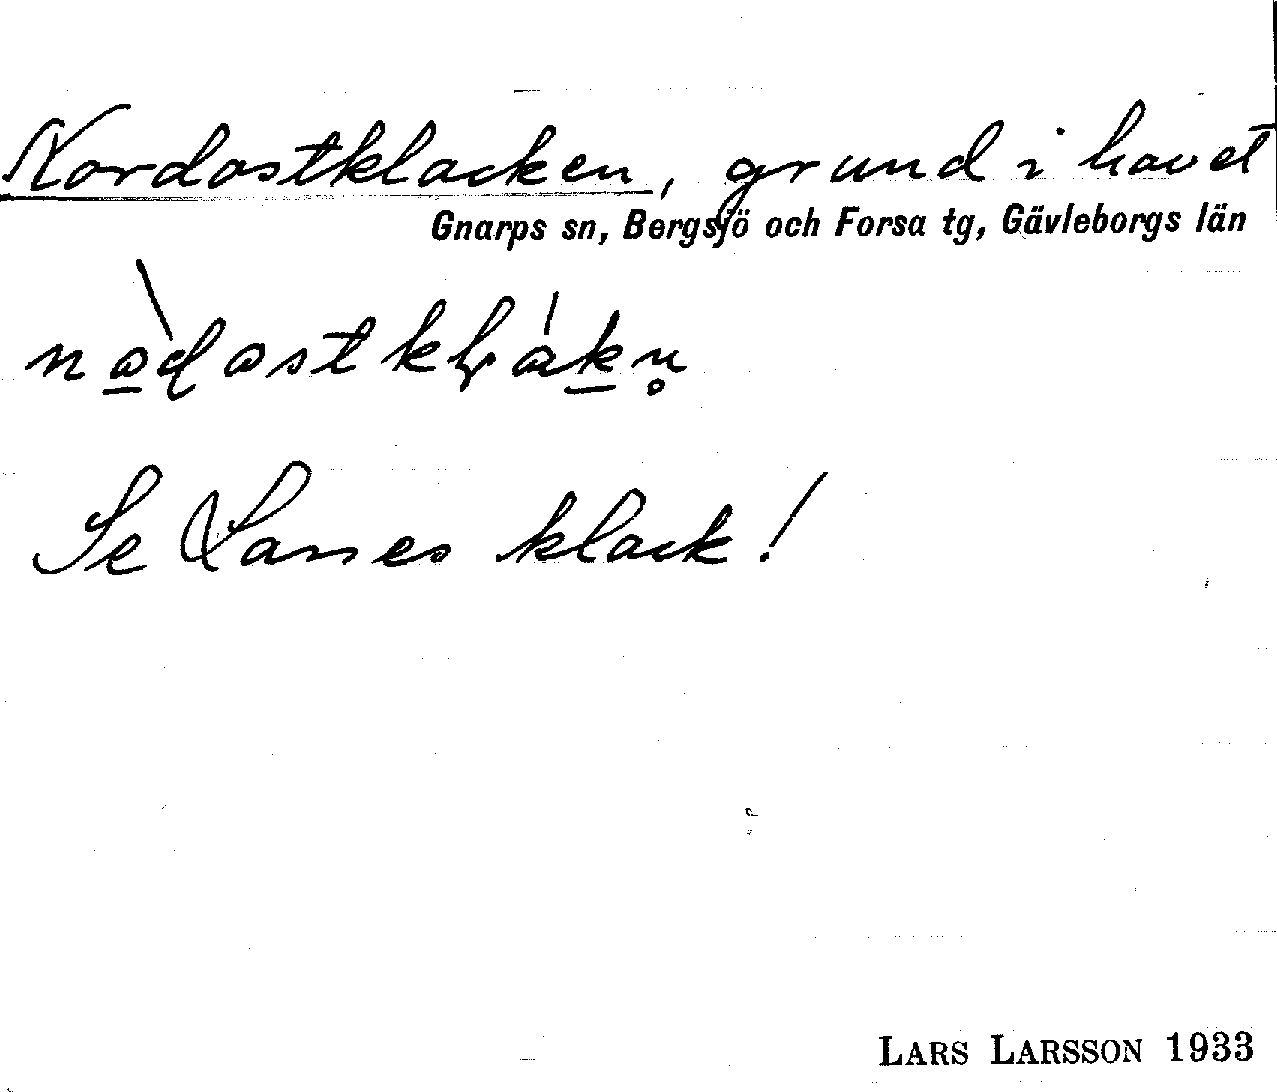 Nordostklacken, grund i havet
Gnarps sn, Bergsjö och Forsa tg, Gävleborgs län
Se klack!
LARS LARSSON 1933